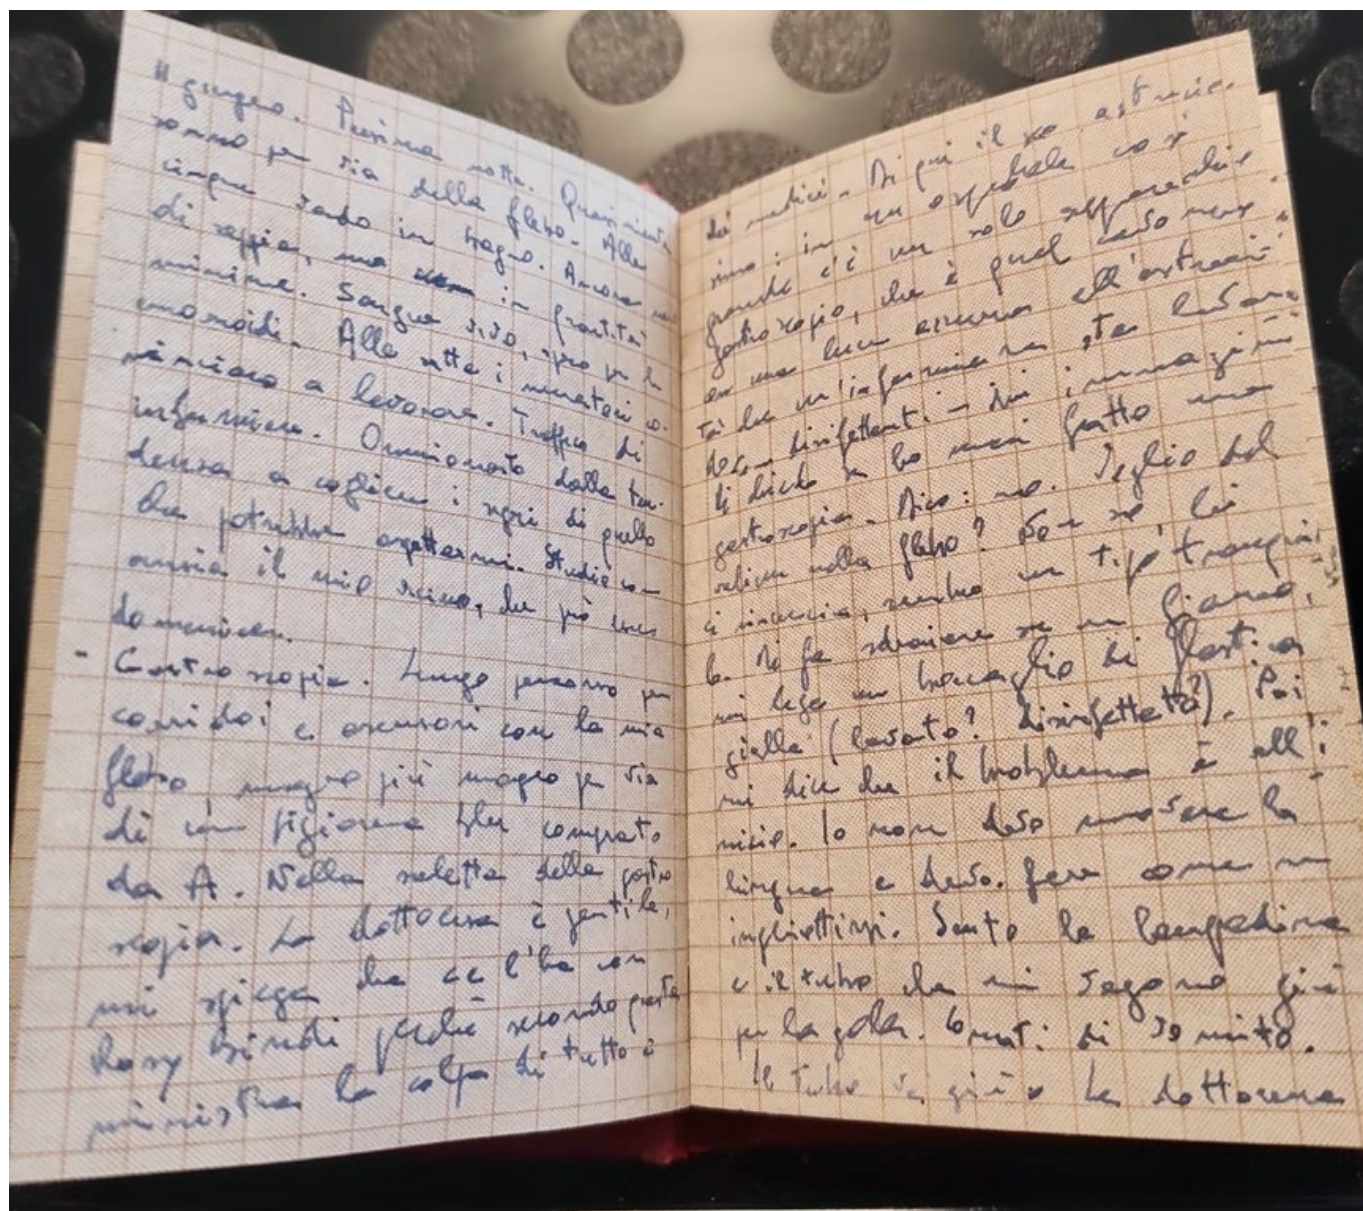 11 giugno. Prima notte. Quasi niente
sonno per via della flebo. Alle
cinque vado in bagno. Ancora
di seppia, ma in quantità
minime. Sangue vivo, spero per le
emorroidi. Alle sette i muratori co-
minciano a lavorare. Traffico di
infermiere. Ovviamente dalla ten-
denza a cogliere i segni di quello
che potrebbe aspettarmi. Studio con
ansia il mio vicino, che può
domenica.
- Gastroscopia. Lungo percorso per
corridoi e ascensori con la mia
flebo, magro più magro per via
di un pigiama blu comprato
da A. Nella saletta della gastro
scopia. La dottoressa è gentile,
mi spiega che ce l'ha con
Rosy Bindi perché secondo questa
ministra la colpa di tutto è
dei medici. Di qui il suo
simo: in un ospedale così
grande c'è un solo apparecchio
gastroscopio, che è quel
con una luce all'estremi
tà che un'infermiera sta lavan
do disinfettanti. - Mi
chiede se ho mai fatto una
gastroscopia. Dico: no. Voglio del
valium nella flebo? Se no, lei
ci rinuncia, sembro un tipo tranquil
lo. Mi fa sdraiare su un fianco,
mi lega un boccaglio di plastica
gialla (lavato? disinfettato?). Poi
mi dice che il problema è all'i
nizio. Io non devo muovere la
lingua e devo fare come se
inghiottissi. Sento la lampadina
e il tubo che mi vanno giù
per la gola. Conati di vomito.
Il tubo va giù. La dottoressa